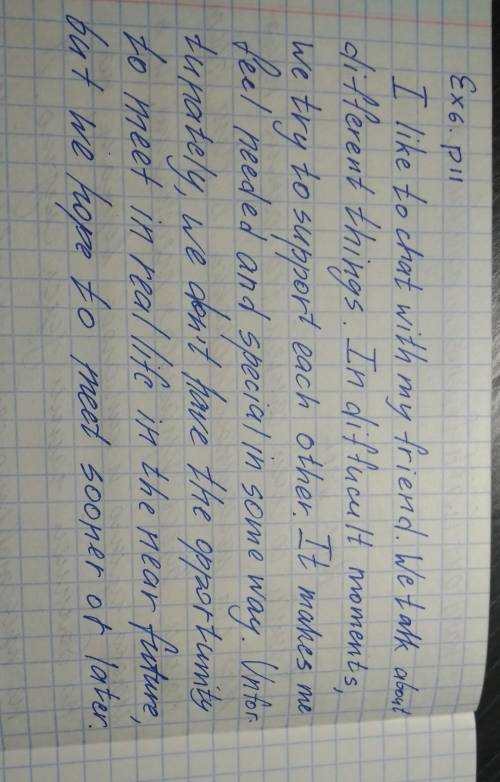 Ex6. p11
I like to chat with my friend. We talk about
different things. In difficult moments,
we try to support each other. It makes me
feel needed and special in some way. Unfor-
tunately, we don't have the opportunity
to meet in real life in the near future,
but we hope to meet sooner of later.